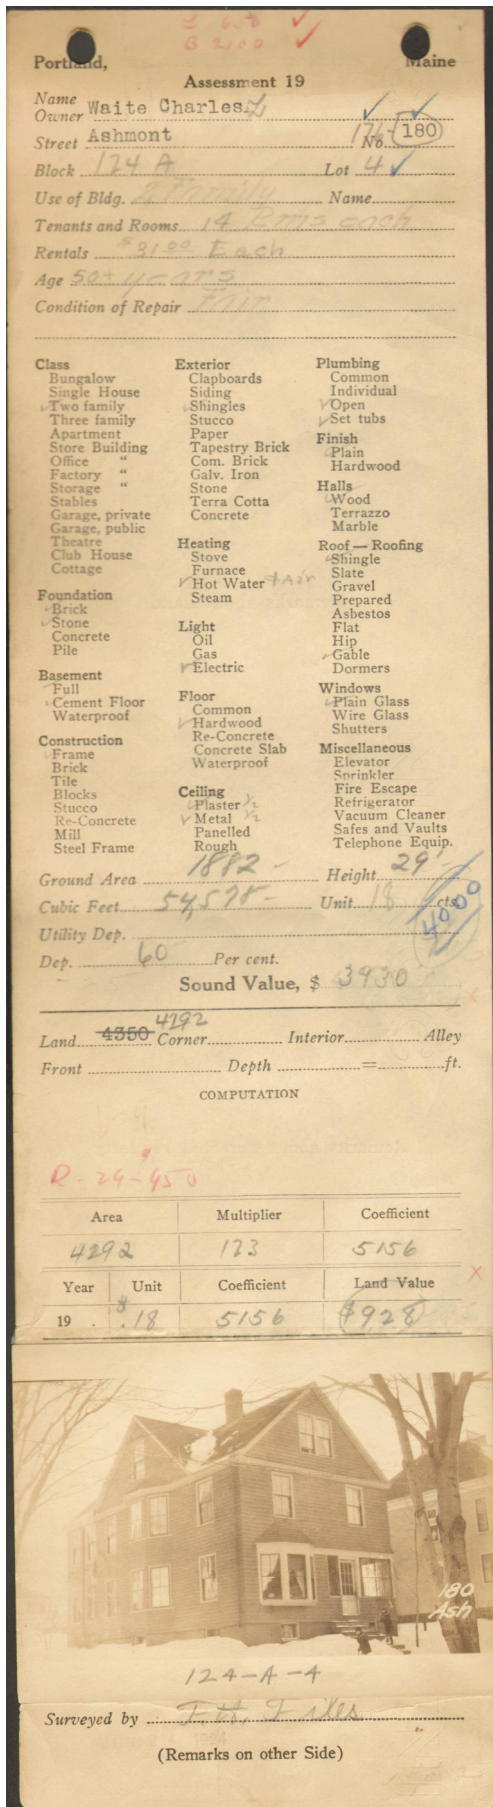 L 650 ✓
B 2100 ✓
Portland, Maine
Assessment 19
Name
Owner Waite Charles L
Street Ashmont No 176-180
Block 124 A Lot 4 ✓
Use of Bldg. 2 Family Name
Tenants and Rooms 14 Rms each
Rentals $31.00 Each
Age 50+ years
Condition of Repair Fair
Class
Bungalow
Single House
✓Two family
Three family
Apartment
Store Building
Office "
Factory "
Storage "
Stables
Garage, private
Garage, public
Theatre
Club House
Cottage
Foundation
✓Brick
✓Stone
Concrete
Pile
Basement
✓Full
✓Cement Floor
Waterproof
Construction
✓Frame
Brick
Tile
Blocks
Stucco
Re-Concrete
Mill
Steel Frame
Exterior
Clapboards
Siding
✓Shingles
Stucco
Paper
Tapestry Brick
Com. Brick
Galv. Iron
Stone
Terra Cotta
Concrete
Heating
Stove
Furnace
✓Hot Water + Air
Steam
Light
Oil
Gas
✓Electric
Floor
Common
✓Hardwood
Re-Concrete
Concrete Slab
Waterproof
Ceiling
✓Plaster ½
✓Metal ½
Panelled
Rough
Plumbing
Common
Individual
✓Open
✓Set tubs
Finish
✓Plain
Hardwood
Halls
✓Wood
Terrazzo
Marble
Roof — Roofing
✓Shingle
Slate
Gravel
Prepared
Asbestos
Flat
Hip
✓Gable
Dormers
Windows
✓Plain Glass
Wire Glass
Shutters
Miscellaneous
Elevator
Sprinkler
Fire Escape
Refrigerator
Vacuum Cleaner
Safes and Vaults
Telephone Equip.
Ground Area 1882 - Height 29'
Cubic Feet 54,578- Unit 18 cts.
4000
Utility Dep.
Dep. 60 Per cent.
Sound Value, $ 3930
4292
Land 4350 Corner Interior Alley
Front Depth = ft.
COMPUTATION
R-29-450
Area Multiplier Coefficient
4292 123 5156
Year Unit Coefficient Land Value
19 . $.18 5156 $928
180
Ash
124-A-4
Surveyed by Files
(Remarks on other Side)